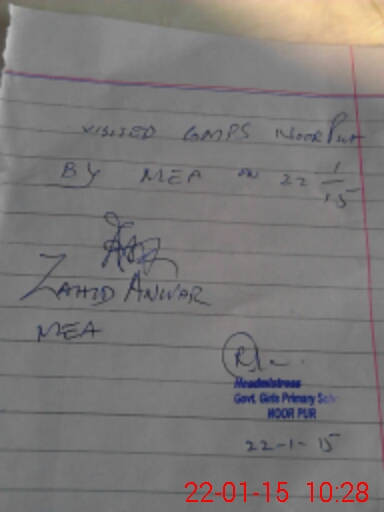 VISITED GMPS NOOR PUR
BY MEA ON 22 1/15
ZAHID ANWAR
MEA
Headmistress
Govt. Girls Primary Sch
NOOR PUR
22-1-15
22-01-15 10:28